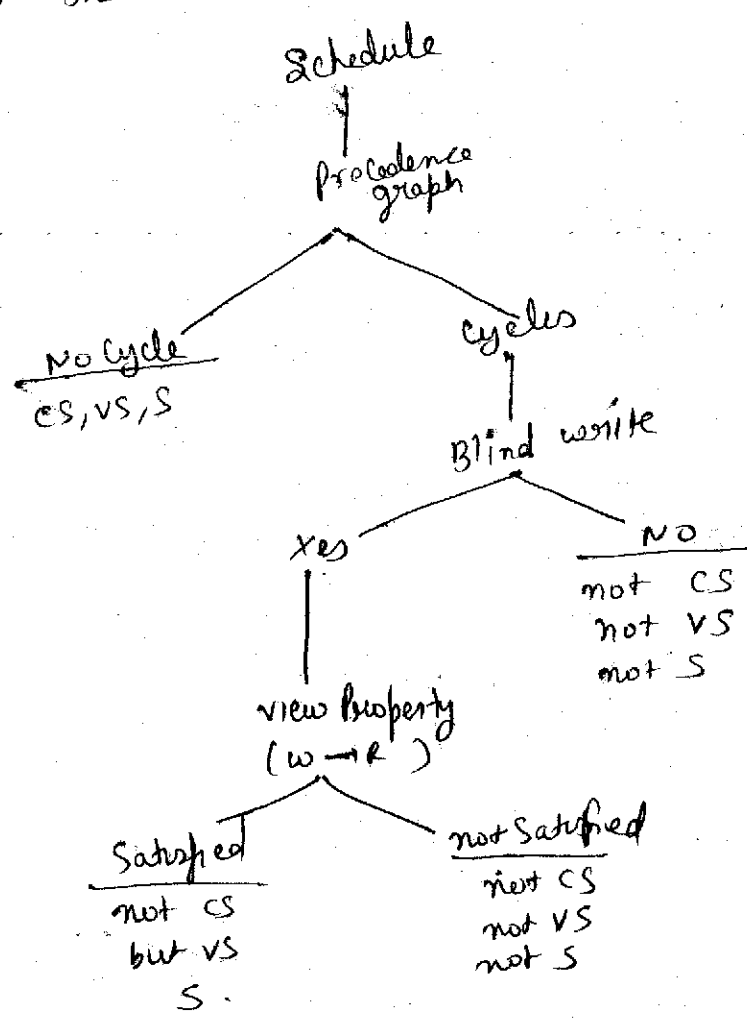 Schedule
Precedence
graph
No Cycle
CS, VS, S
Cycles
Blind write
Yes
NO
not CS
not VS
not S
view Property
(W → R)
Satisfied
not CS
but VS
S.
not Satisfied
not CS
not VS
not S